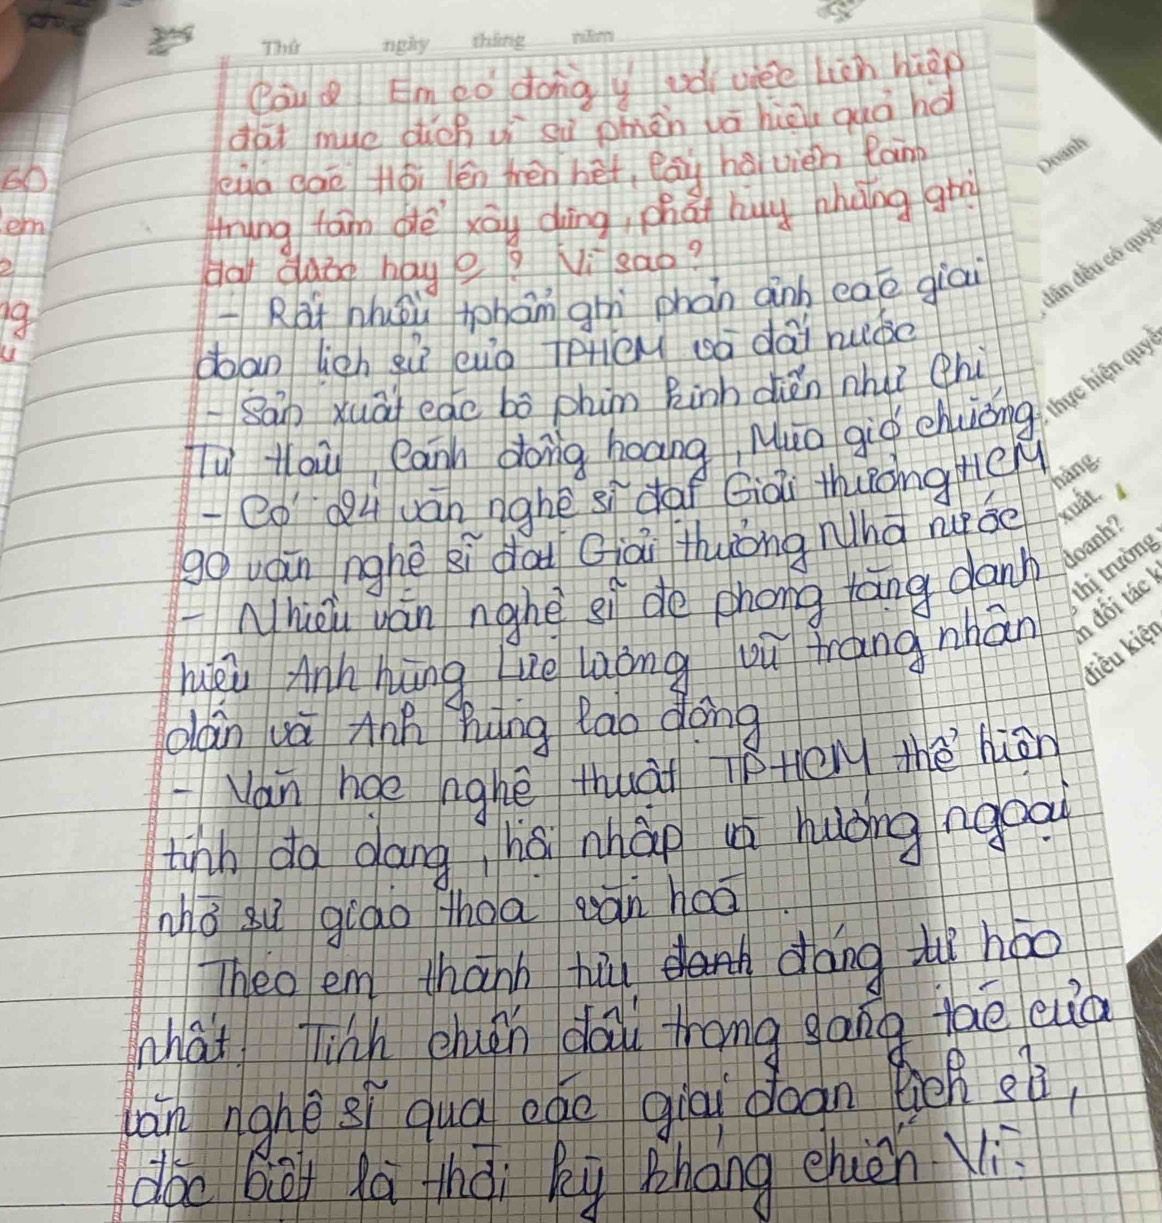 Thứ ngày tháng năm
Câu 2 Em có đồng ý với việc liên hiệp
đặt mục đích vì sự phồn và hiệu quả hơ
của các Hội lên trên hết, lấy hội viên làm
trung tâm để xây dựng, phát huy những ghi
đạt được hay o ? Vì sao?
- Rất nhiều tphẩm ghi phản ánh các giai
đoạn lịch sử của TPHCM và đất nước
- Sản xuất các bộ phim kinh điển như Chị
Tư Hậu, Cánh đồng hoang, Mùa gió chướng
- Có 24 văn nghệ sĩ đạt Giải thưởng HCM
90 văn nghệ sĩ đạt Giải thưởng Nhà nước
- Nhiều văn nghệ sĩ đc phong tặng danh
hiệu Anh hùng Lực lượng vũ trang nhân
dân và Anh hùng lao động
- Văn học nghệ thuật TPHCM thể hiện
tính đa dạng, hội nhập và hướng ngoại
nhờ sự giao thoa văn hoá
Theo em thành tựu đáng tự hào
nhất: Tính chiến đấu trong sáng tác của
văn nghệ sĩ qua các giai đoạn lịch sử,
đặc biệt là thời kỳ kháng chiến. Vì:
60
em
ng
Doanh
dân đều có quyề
thực hiện quyề
hàng.
xuất.
doanh?
thị trường
n đối tác k
điều kiện